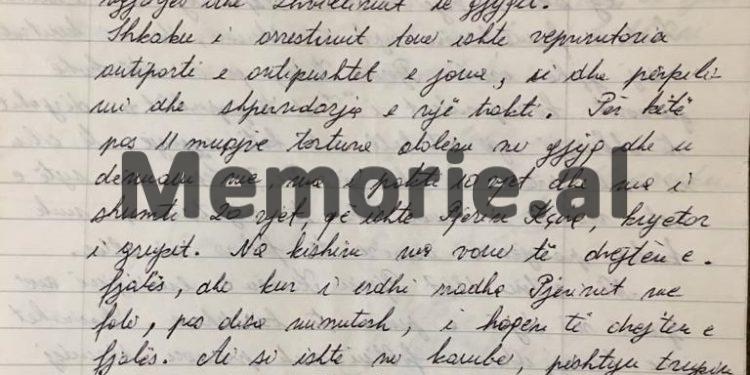 dhe zhvillimit të gjyqit.
Shkaku i arrestimit tonë ishte veprimtaria
antiparti e antipushtet e jona, si dhe përpili-
mi dhe shperndarja e një trakti. Per këtë
pas 11 muajve torture dolëm në gjyq dhe u
denuam me, ma i pakti 10 vjet dhe ma i
Memorie.al
shumti 20 vjet, që ishte Pjerin Kçira, kryetar
i grupit. Na kishim me vone të drejtën e
fjalës, dhe kur i erdhi radha Pjerinit me
folë, pas disa minutash, i hoqën të drejtën e
fjalës. Ai si ishte në kambë, pështyu trupin